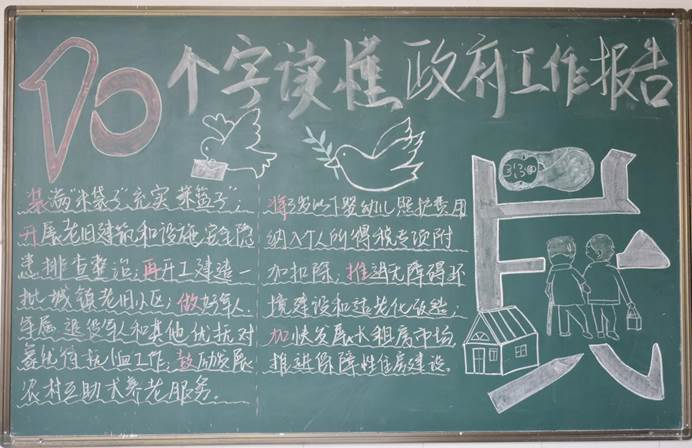 10个字读懂政府工作报告
装满“米袋子”、充实“菜篮子”；
开展老旧建筑和设施安全隐
患排查整治；再开工建造一
批城镇老旧小区；做好军人
军属、退役军人和其他优抚对
象优待抚恤工作；鼓励发展
农村互助式养老服务。
将3岁以下婴幼儿照护费用
纳入个人所得税专项附
加扣除；推进无障碍环
境建设和适老化改造；
加快发展长租房市场，
推进保障性住房建设。
民